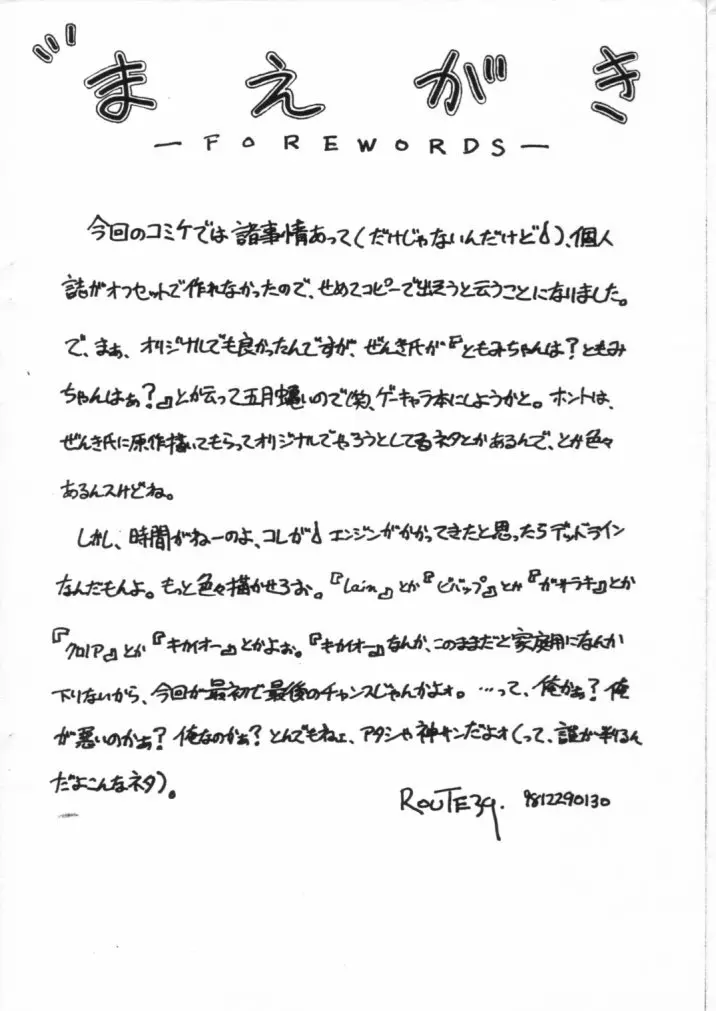 まえがき
—FOREWORDS—
今回のコミケでは諸事情あって(だけじゃないんだけど)、個人
誌がオフセットで作れなかったので、せめてコピーで出そうと云うことになりました。
で、まぁ、オリジナルでも良かったんですが、ぜんき氏が『ともみちゃんは?ともみ
ちゃんはぁ?』とか云って五月蝿いので(笑)、ゲーキャラ本にしようかと。ホントは、
ぜんき氏に原作描いてもらってオリジナルでやろうとしてるネタとかあるんで、とか色々
あるんスけどね。
しかし、時間がねーのよ、コレが エンジンがかかってきたと思ったらデッドライン
なんだもんよ。もっと色々描かせろお。『lain』とか『ビバップ』とか『ガサラキ』とか
『クロノア』とか『キカイオー』とかよぉ。『キカイオー』なんか、このままだと家庭用になんか
下りないから、今回が最初で最後のチャンスじゃんかよォ。…って、俺かぁ?俺
が悪いのかぁ?俺なのかぁ?とんでもねェ、アタシャ神サンだよォ(って、誰が判るん
だよこんなネタ)。
ROUTE39. 9812290130